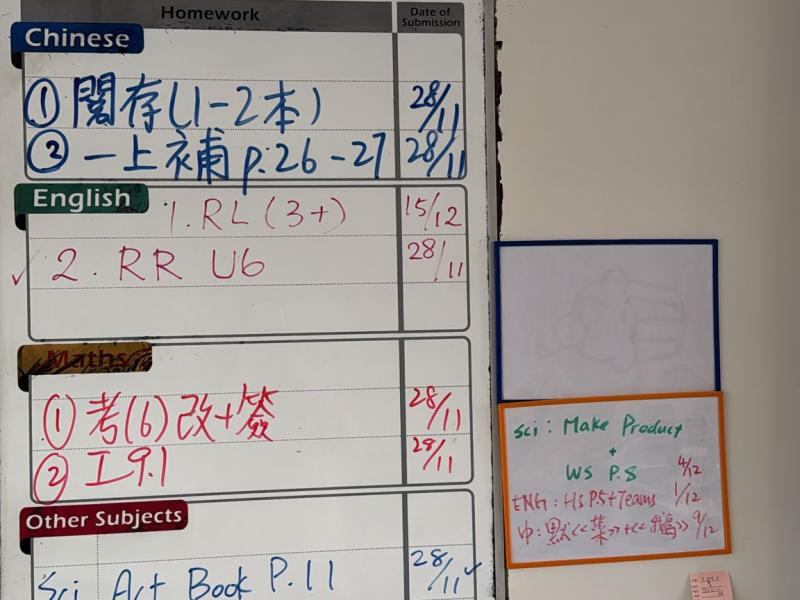 Homework
Date of Submission
Chinese
① 閱存(1-2本) 28/11
② 一上補 p.26-27 28/11
English
1. RL (3+) 15/12
2. RR U6 28/11
Maths
① 考(6)改+簽 28/11
② 工9.1 28/11
Other Subjects
Sci Act Book P.11 28/11
Sci: Make Product
+
WS P.8 4/12
ENG: HS P5+Teams 1/12
中: 默<<葉>>+<<鵝>> 9/12